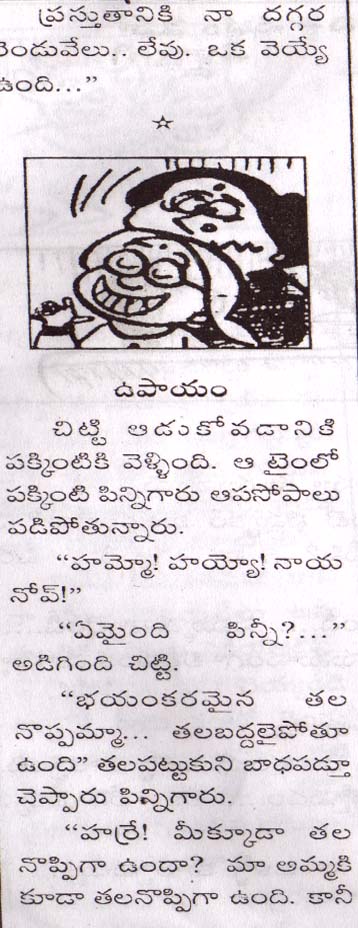 ప్రస్తుతానికి నా దగ్గర
రెండువేలు.. లేవు. ఒక వెయ్యే
ఉంది...”
ఉపాయం
చిట్టి ఆడుకోవడానికి
పక్కింటికి వెళ్ళింది. ఆ టైంలో
పక్కింటి పిన్నిగారు ఆపసోపాలు
పడిపోతున్నారు.
“హమ్మో! హయ్యో! నాయ
నోవ్!”
“ఏమైంది పిన్నీ?...”
అడిగింది చిట్టి.
“భయంకరమైన తల
నొప్పమ్మా... తలబద్దలైపోతూ
ఉంది” తలపట్టుకుని బాధపడ్తూ
చెప్పారు పిన్నిగారు.
“హర్రే! మీక్కూడా తల
నొప్పిగా ఉందా? మా అమ్మకి
కూడా తలనొప్పిగా ఉంది. కానీ